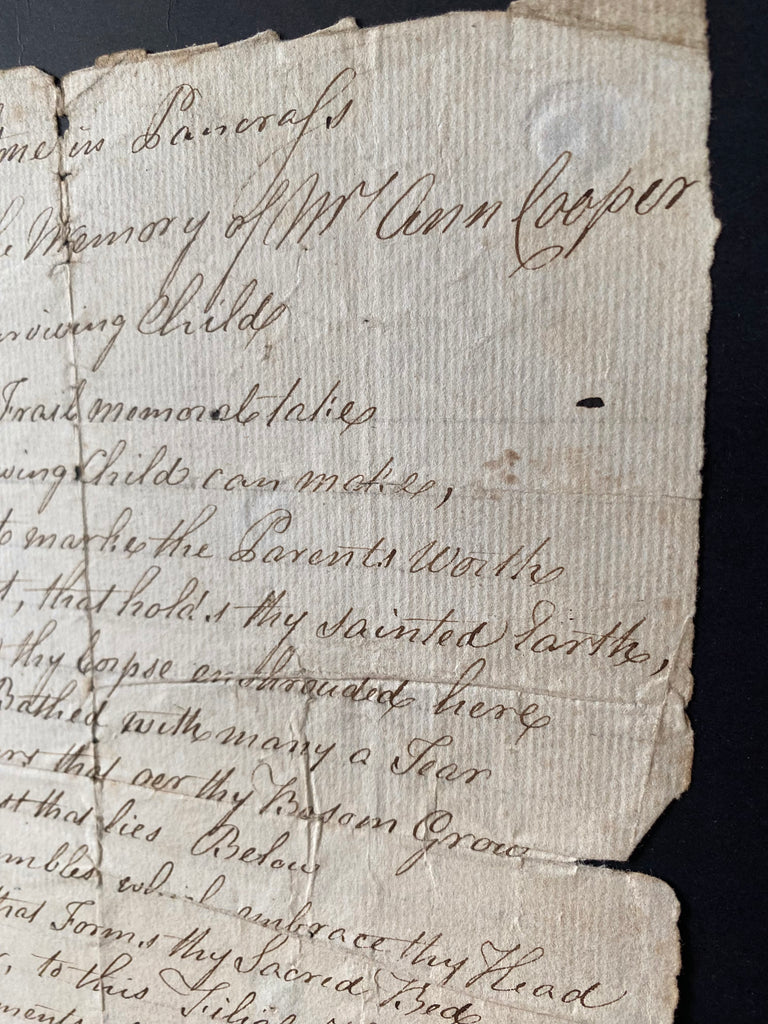 me in Pancrass
Memory of Mrs Ann Cooper
rviving Child
Frail memorl take
wing Child can make,
to marke the Parents Worth
t, that holds thy sainted Earth,
thy Corpse enshrouded here
Bathed with many a Tear
that oer thy Bosom Grow
st that lies Below
mbles which embrace thy Head
that Forms thy Sacred Bed
to this Filial
ments